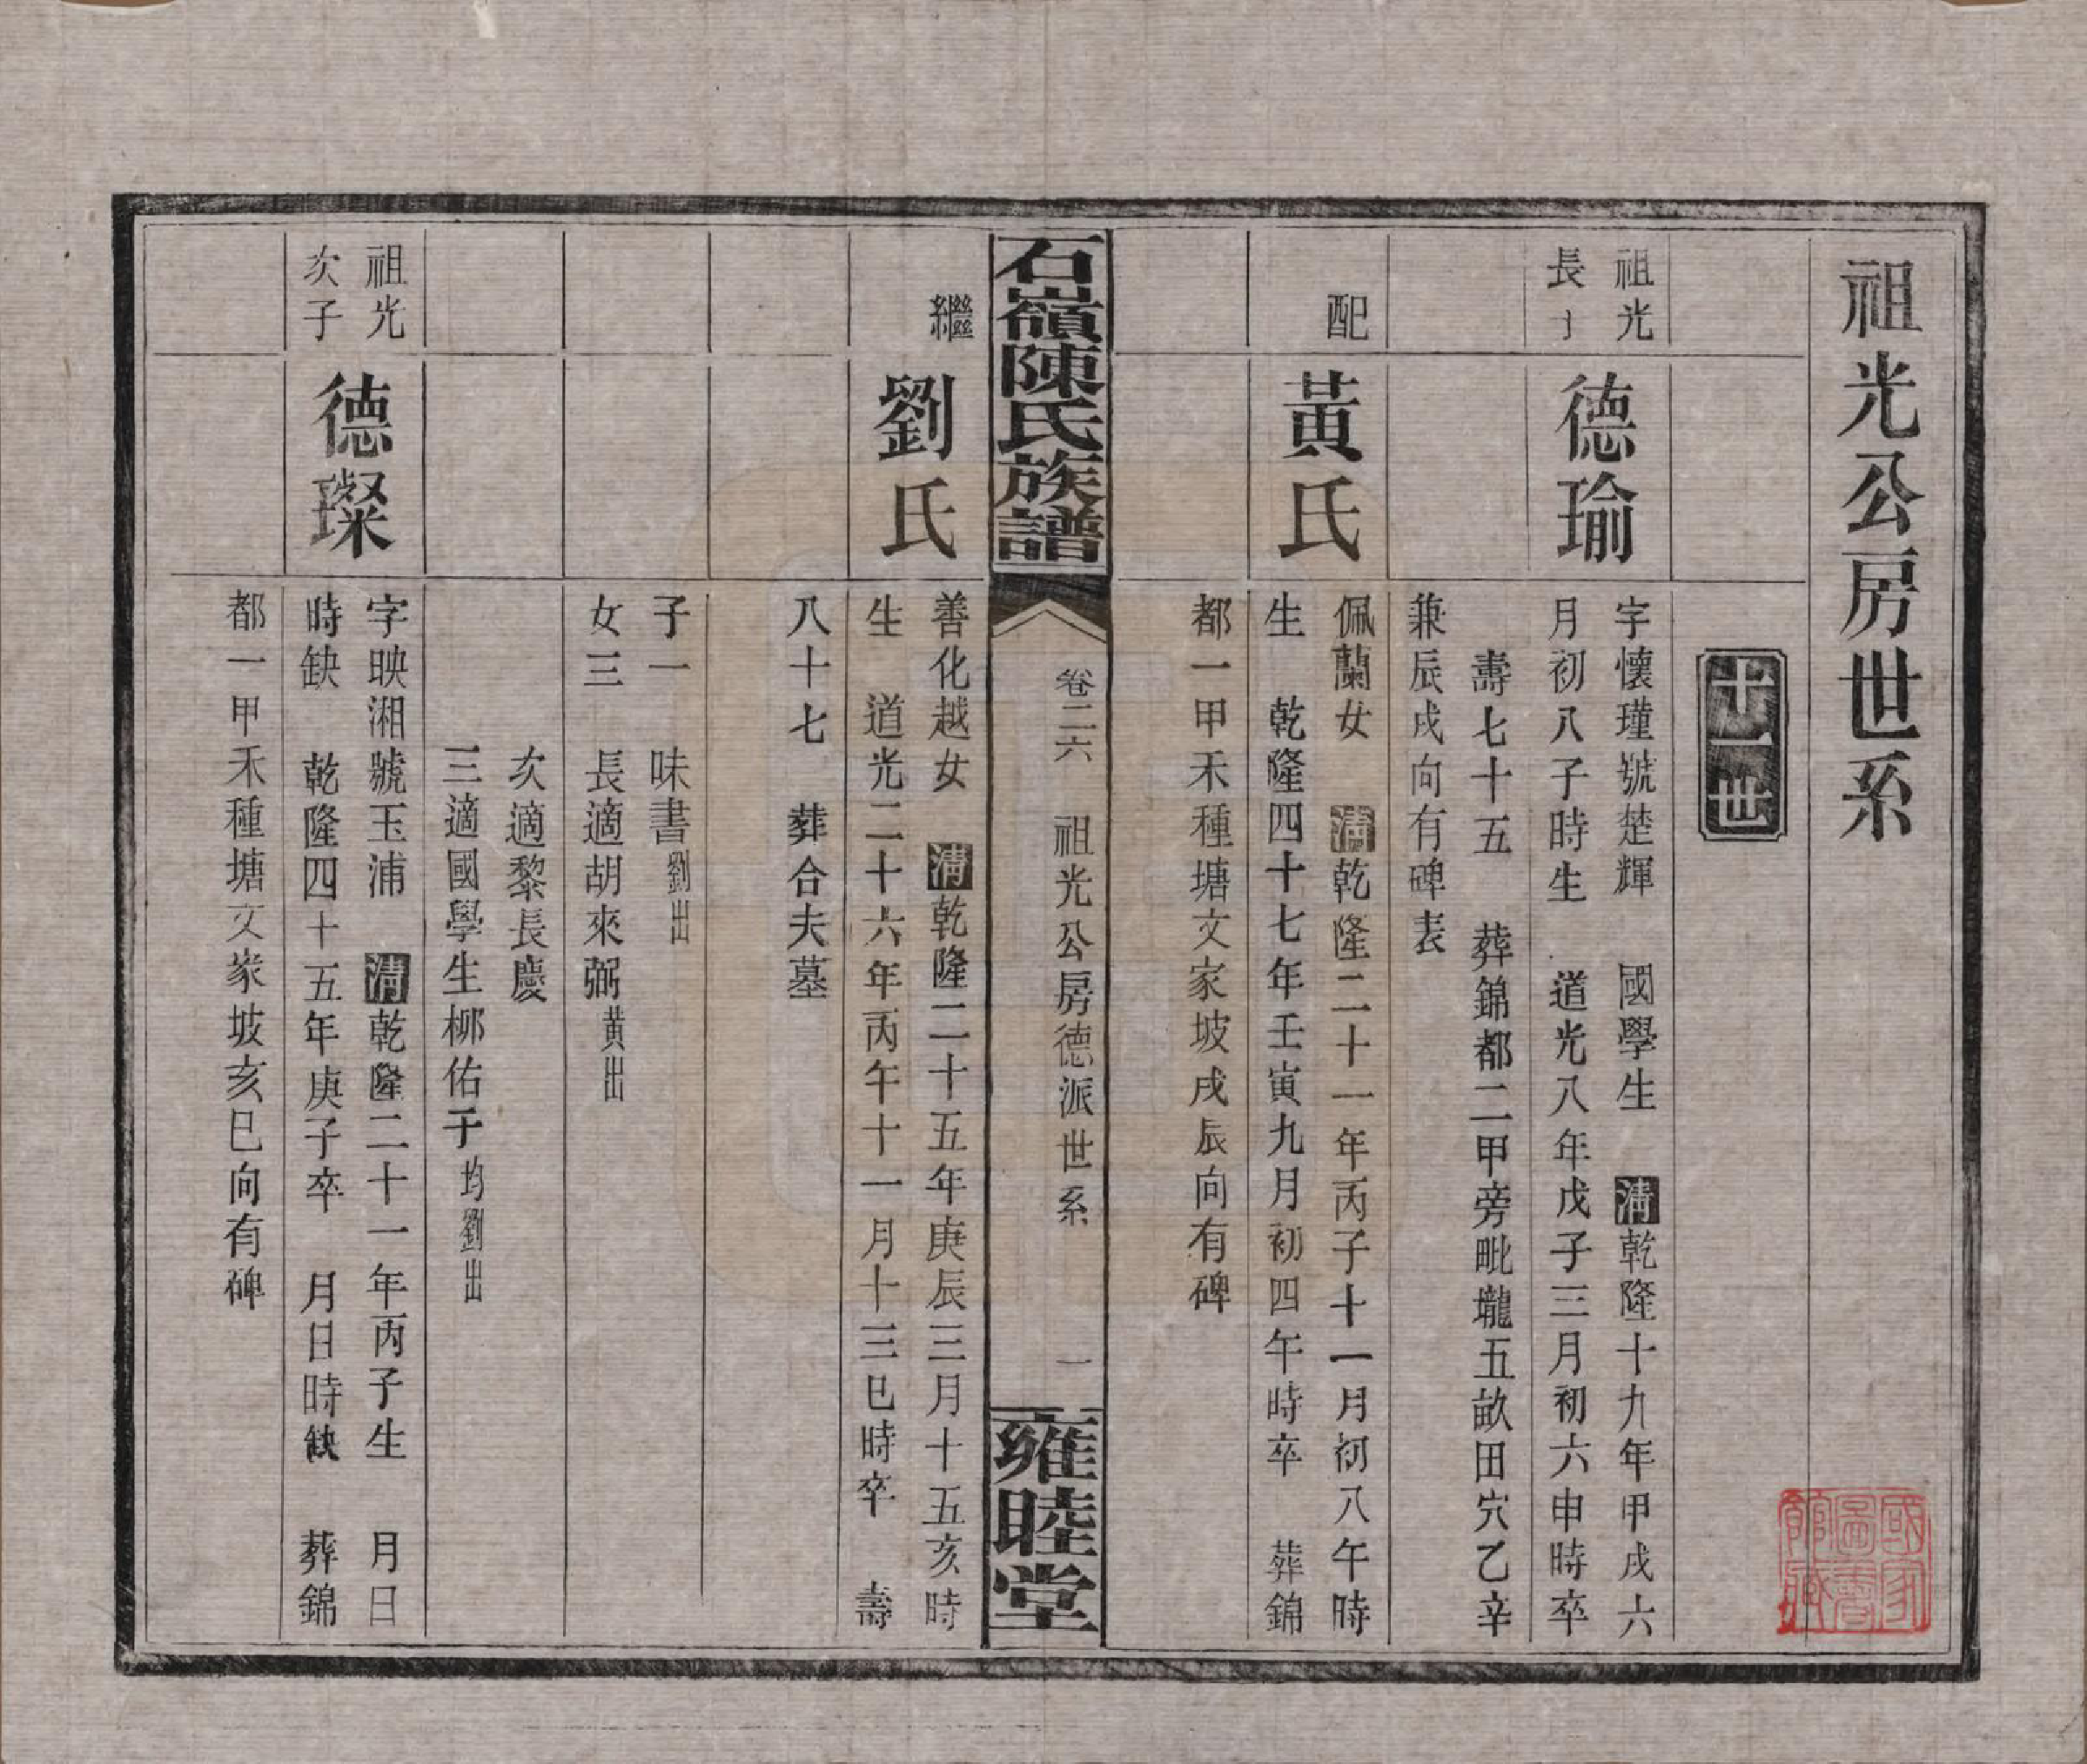 祖光公房世系
十一世
祖光
長子
德瑜
字懷瑾號楚輝 國學生 清乾隆十九年甲戌六
月初八子時生 道光八年戊子三月初六申時卒
壽七十五 葬錦都二甲旁毗壠五畝田穴乙辛
兼辰戌向有碑表
配
黃氏
佩蘭女 清乾隆二十一年丙子十一月初八午時
生 乾隆四十七年壬寅九月初四午時卒 葬錦
都一甲禾種塘文家坡戌辰向有碑
石嶺陳氏族譜
卷二六 祖光公房德派世系 一
雍睦堂
繼
劉氏
善化越女 清乾隆二十五年庚辰三月十五亥時
生 道光二十六年丙午十一月十三巳時卒 壽
八十七 葬合夫墓
子一 味書劉出
女三 長適胡來弼黃出
次適黎長慶
三適國學生柳佑予均劉出
祖光
次子
德璨
字映湘號玉浦 清乾隆二十一年丙子生 月日
時缺 乾隆四十五年庚子卒 月日時缺 葬錦
都一甲禾種塘文家坡亥巳向有碑
國家
圖書
館藏